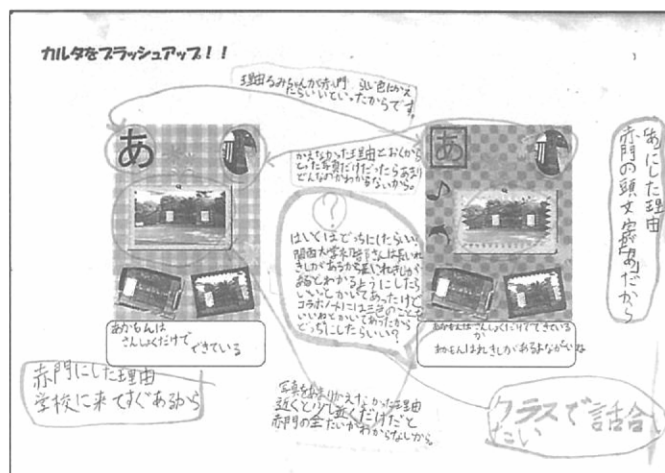 カルタをブラッシュアップ！！
1
理由るみちゃんが赤門
色にかえ
たらいいといったからです。
あ
あ
かえなかった理由とおくから
とった写真だけだったらあまり
どんなのかわからないから。
「あ」にした理由
赤門の頭文字が「あ」だから
？
はいくはどっちにしたらいい
関西大学
さんは長いれ
きしがあるから長いれきしが
あるとわかるようにしたら
いいとかいてあったけど
コラボノートには三色のことも
いいねとかいてあったから
どっちにしたらいい？
あかもんは
さんしょくだけで
できている
あかもんはさんしょくだけでできている
か
あかもんはれきしがあるよながいな
赤門にした理由
学校に来てすぐあるから
写真をあまりかえなかった理由
近くと少し近くだけだと
赤門の全たいがわからないから。
クラスで話合い
たい